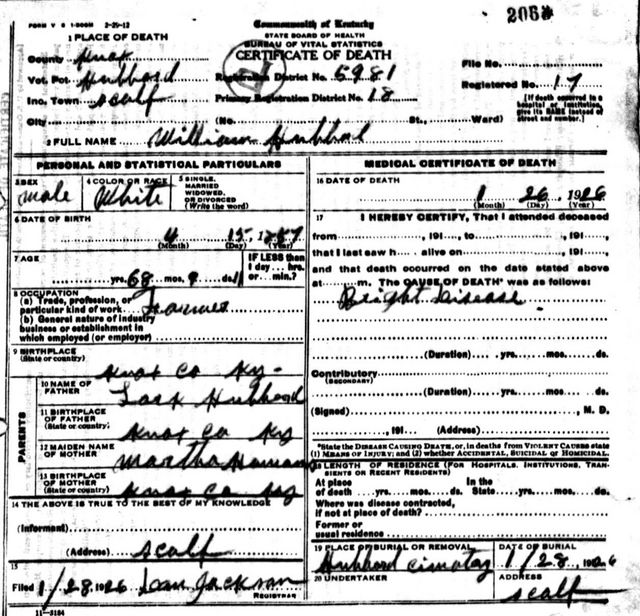 FORM V S 1-500M 2-29-12
Commonwealth of Kentucky
STATE BOARD OF HEALTH
BUREAU OF VITAL STATISTICS
CERTIFICATE OF DEATH
1 PLACE OF DEATH
County Knox
Vot. Pct. Hubbard
Inc. Town Scalf
City (No. St., Ward)
Registration District No. 5981
Primary Registration District No. 18
File No.
Registered No. 17
[If death occurred in a
hospital or institution,
give its NAME instead of
street and number.]
2 FULL NAME William
PERSONAL AND STATISTICAL PARTICULARS
3 SEX
male
4 COLOR OR RACE
White
5 SINGLE,
MARRIED
WIDOWED,
OR DIVORCED
(Write the word)
6 DATE OF BIRTH
4 15, 1857
(Month) (Day) (Year)
7 AGE
yrs. 68 mos. 9 ds. 11
IF LESS than
1 day ... hrs.
or ... min.?
8 OCCUPATION
(a) Trade, profession, or
particular kind of work Farmer
(b) General nature of industry
business or establishment in
which employed (or employer)
9 BIRTHPLACE
(State or country)
Knox Co Ky-
PARENTS
10 NAME OF
FATHER
Hubbard
11 BIRTHPLACE
OF FATHER
(State or country)
Knox Co Ky
12 MAIDEN NAME
OF MOTHER
Martha
13 BIRTHPLACE
OF MOTHER
(State or country)
Knox Co Ky
14 THE ABOVE IS TRUE TO THE BEST OF MY KNOWLEDGE
(Informant)
(Address) Scalf
15
Filed 1/28, 1926 Jackson
REGISTRAR
11-3184
MEDICAL CERTIFICATE OF DEATH
16 DATE OF DEATH
1 26, 1926
(Month) (Day) (Year)
17 I HEREBY CERTIFY, That I attended deceased
from , 191 , to , 191 ,
that I last saw h alive on , 191 ,
and that death occurred on the date stated above
at m. The CAUSE OF DEATH* was as follows:
Bright Disease
(Duration) yrs. mos. ds.
Contributory
(SECONDARY)
(Duration) yrs. mos. ds.
(Signed) , M. D.
, 191 (Address)
*State the DISEASE CAUSING DEATH, or, in deaths from VIOLENT CAUSES state
(1) MEANS OF INJURY; and (2) whether ACCIDENTAL, SUICIDAL or HOMICIDAL.
18 LENGTH OF RESIDENCE (FOR HOSPITALS, INSTITUTIONS, TRAN-
SIENTS OR RECENT RESIDENTS)
At place In the
of death yrs. mos. ds. State yrs. mos. ds.
Where was disease contracted,
if not at place of death?
Former or
usual residence
19 PLACE OF BURIAL OR REMOVAL
Hubbard
DATE OF BURIAL
1/28, 1926
20 UNDERTAKER
ADDRESS
Scalf